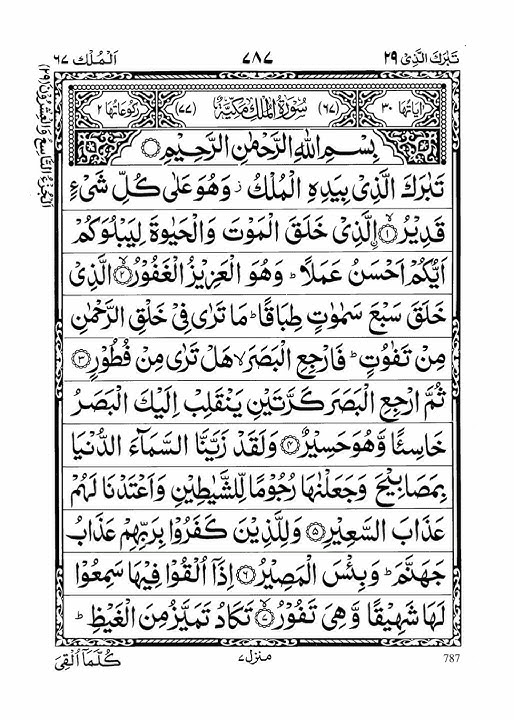 تَبٰرَكَ الَّذِیْ ۲۹ ۷۸۷ اَلْمُلْك ۶۷
اَلْجُزْءُ التَّاسِعُ وَالْعِشْرُوْنَ (۲۹)
اٰیَاتُهَا ۳۰ (۶۷) سُوْرَةُ الْمُلْكِ مَكِّیَّةٌ (۷۷) رُكُوْعَاتُهَا ۲
بِسْمِ اللّٰهِ الرَّحْمٰنِ الرَّحِیْمِ
تَبٰرَكَ الَّذِیْ بِیَدِهِ الْمُلْكُ ز وَهُوَ عَلٰی كُلِّ شَیْءٍ
قَدِیْرُ ۨ ۙ﴿۱﴾ الَّذِیْ خَلَقَ الْمَوْتَ وَالْحَیٰوةَ لِیَبْلُوَكُمْ
اَیُّكُمْ اَحْسَنُ عَمَلًا ؕ وَهُوَ الْعَزِیْزُ الْغَفُوْرُ ﴿۲﴾ الَّذِیْ
خَلَقَ سَبْعَ سَمٰوٰتٍ طِبَاقًا ؕ مَا تَرٰی فِیْ خَلْقِ الرَّحْمٰنِ
مِنْ تَفٰوُتٍ ؕ فَارْجِعِ الْبَصَرَ ۙ هَلْ تَرٰی مِنْ فُطُوْرٍ ﴿۳﴾
ثُمَّ ارْجِعِ الْبَصَرَ كَرَّتَیْنِ یَنْقَلِبْ اِلَیْكَ الْبَصَرُ
خَاسِئًا وَّهُوَ حَسِیْرٌ ﴿۴﴾ وَلَقَدْ زَیَّنَّا السَّمَآءَ الدُّنْیَا
بِمَصَابِیْحَ وَجَعَلْنٰهَا رُجُوْمًا لِّلشَّیٰطِیْنِ وَاَعْتَدْنَا لَهُمْ
عَذَابَ السَّعِیْرِ ﴿۵﴾ وَلِلَّذِیْنَ كَفَرُوْا بِرَبِّهِمْ عَذَابُ
جَهَنَّمَ ؕ وَبِئْسَ الْمَصِیْرُ ﴿۶﴾ اِذَاۤ اُلْقُوْا فِیْهَا سَمِعُوْا
لَهَا شَهِیْقًا وَّ هِیَ تَفُوْرُ ﴿۷﴾ تَكَادُ تَمَیَّزُ مِنَ الْغَیْظِ ؕ
787 منزل ۷ كُلَّمَاۤ اُلْقِیَ